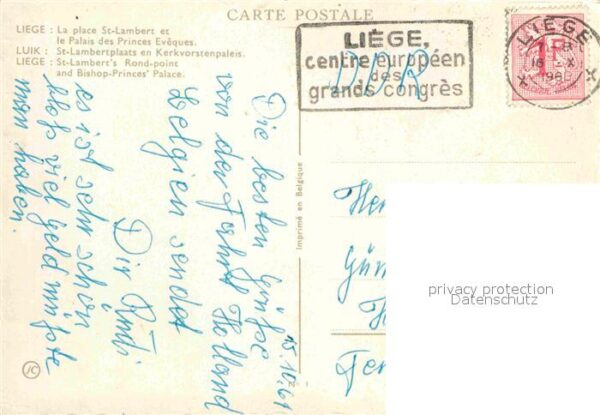 CARTE POSTALE
LIEGE : La place St-Lambert et
le Palais des Princes Evêques.
LUIK : St-Lambertplaats en Kerkvorstenpaleis.
LIEGE : St-Lambert's Rond-point
and Bishop-Princes' Palace.
LIÈGE,
centre européen
des
grands congrès
DDR
LIEGE
1F
Imprimé en Belgique
15.10.61
Die besten Grüße
von der Fahrt Holland
Belgien sendet
Dir
es ist sehr schön
blos viel Geld müßte
man haben.
privacy protection
Datenschutz
JC